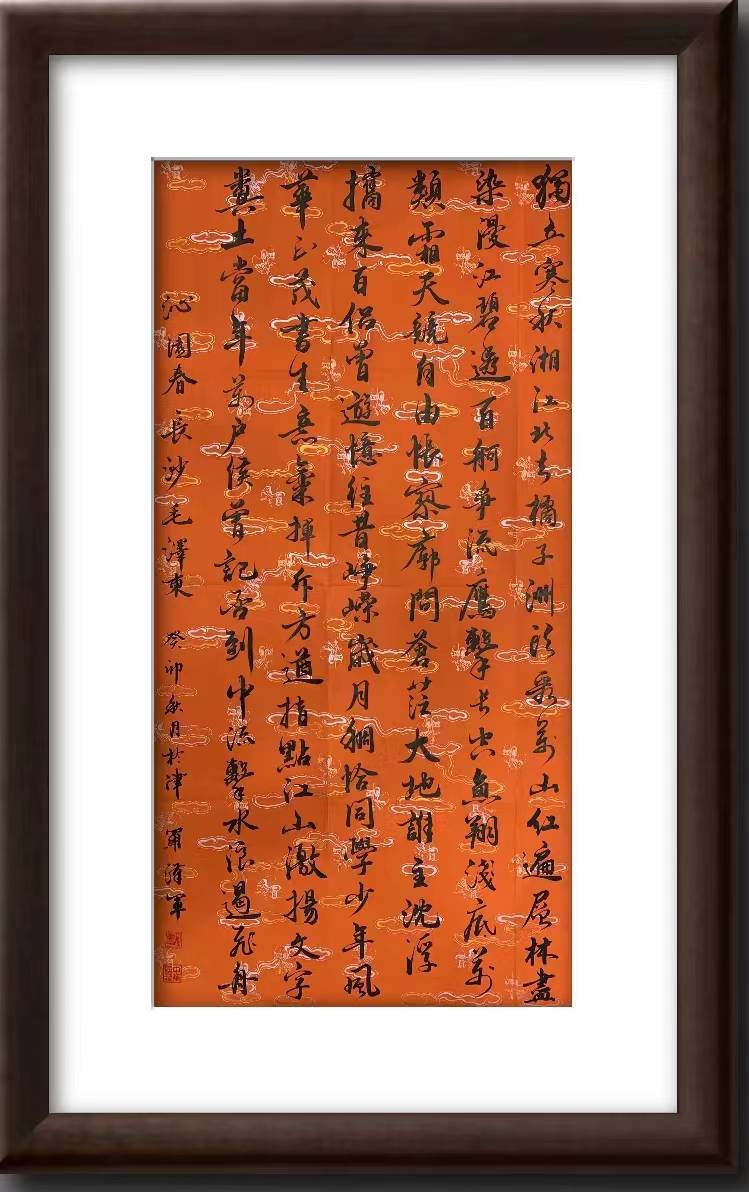 獨立寒秋湘江北去橘子洲頭看萬山紅遍層林盡
染漫江碧透百舸爭流鷹擊長空魚翔淺底萬
類霜天競自由悵寥廓問蒼茫大地誰主沈浮
攜來百侣曾遊憶往昔崢嶸歲月稠恰同學少年風
華正茂書生意氣揮斥方遒指點江山激揚文字
糞土當年萬户侯曾記否到中流擊水浪遏飛舟
沁園春長沙毛澤東 癸卯秋月於津 軍